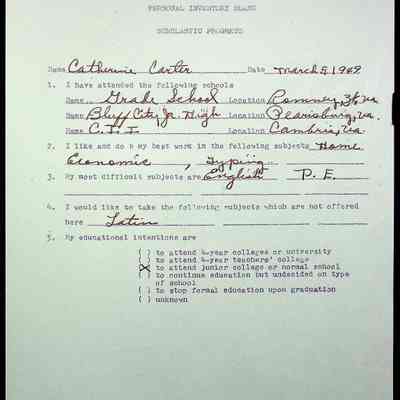 PERSONAL INVENTORY BLANK
SCHOLASTIC PROGRESS
Name Catherine Carter Date March 8, 1949
1. I have attended the following schools
Name Grade School Location Romney, W. Va.
Name Bluff City Jr. High Location Pearisburg, Va.
Name C. I. I. Location Cambria, Va.
2. I like and do my best work in the following subjects Home
Economic, Typing
3. My most difficult subjects are English P. E.
4. I would like to take the following subjects which are not offered
here Latin
5. My educational intentions are
( ) to attend 4-year colleges or university
( ) to attend 4-year teachers' college
(X) to attend junior college or normal school
( ) to continue education but undecided on type
of school
( ) to stop formal education upon graduation
( ) unknown